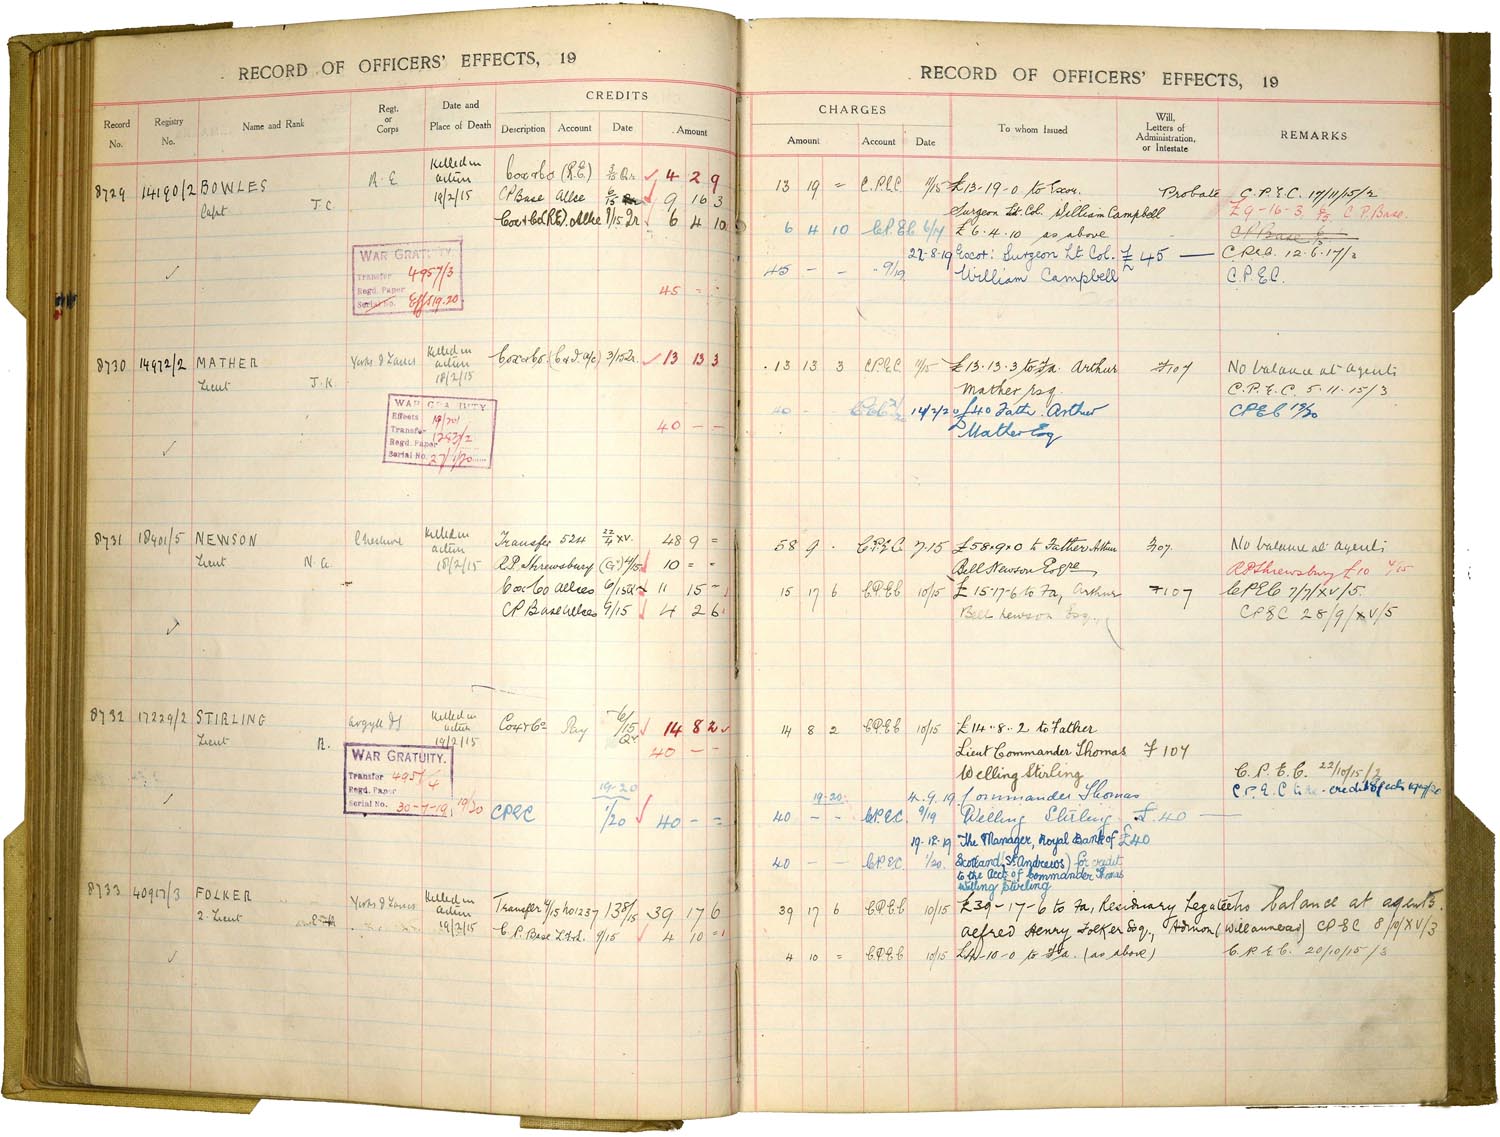 RECORD OF OFFICERS' EFFECTS, 19
Record No.
Registry No.
Name and Rank
Regt. or Corps
Date and Place of Death
CREDITS
Description Account Date Amount
8729 14190/2 BOWLES R E Killed in Cox & Co (R.E.) 4 2 9
Capt J C action CP Base 9 16 3
19/2/15 6 4 10
WAR GRATUITY.
Transfer 4957/3
Regd. Paper
Serial No. Effs 19.20
45 - -
8730 14972/2 MATHER Yorks & Lancs Killed in Cox & Co 3/15 13 13 3
Lieut J.K. action
18/2/15
WAR GRATUITY
Effects 19/20
Transfer
Regd. Paper
Serial No. 27/1/20
40 - -
8731 18401/5 NEWSON Cheshire Killed in Transfer 524 22/4 XV. 48 9 =
Lieut N. A. action R.P. Shrewsbury 10 = =
18/2/15 Cox & Co 6/15 11 15 -
CP Base 9/15 4 2 6
8732 17229/2 STIRLING Argyll Killed in Cox & Co Pay 14 8 2
Lieut R. action 40 - -
19/2/15
WAR GRATUITY.
Transfer
Regd. Paper
Serial No. 30-7-19, 19/20
19-20
CPEC 1/20 40 - =
8733 40917/3 FOLKER Yorks & Lancs Killed in Transfer 39 17 6
2. Lieut action C.P. Base 9/15 4 10 =
19/2/15
RECORD OF OFFICERS' EFFECTS, 19
CHARGES
Amount Account Date
To whom Issued
Will, Letters of Administration, or Intestate
REMARKS
13 19 = C.P.E.C 11/15 £13-19-0 to Exor. Probate C.P.E.C. 17/11/15/2
Surgeon Lt. Col. William Campbell £9-16-3 C P Base.
6 4 10 CPEC 6/17 £6.4.10 as above CP Base
22-8-19 Exor: Surgeon Lt. Col. £45 — 12.6.17/2
45 - - 9/19 William Campbell C.P.E.C.
13 13 3 CPEC 11/15 £13.13.3 to Fa. Arthur F107 No balance at agents
Mather Esq. C.P.E.C. 5.11.15/3
40 - 14/2/20 £40 Fath. Arthur CPEC 19/20
Mather Esq
58 9 . CPEC 7.15 £58.9.0 to Father Arthur F107 No balance at agents
Bell Newson Esqre RP Shrewsbury £10 4/15
15 17 6 CPEC 10/15 £15-17-6 to Fa, Arthur F107 CPEC 7/7/XV/5.
Bell Newson Esq., CPEC 28/9/XV/5
14 8 2 CPEC 10/15 £14.8.2 to Father
Lieut Commander Thomas F 107
Welling Stirling C.P.E.C. 22/10/15/2
19-20 4.9.19 Commander Thomas
40 - - CPEC. 9/19 Welling Stirling £40 —
19.12.19 The Manager, Royal Bank of £40
40 - - CPEC. 1/20. Scotland (St. Andrews) for credit
to the Acct. of Commander Thomas
Welling Stirling
39 17 6 CPEC 10/15 £39-17-6 to Fa, Residuary Legatee No balance at agents.
Alfred Henry Folker Esq., Admon (Will annexed) CPEC 8/10/XV/3
4 10 = CPEC 10/15 £4-10-0 to Fa. (as above) C.P.E.C. 20/10/15/3